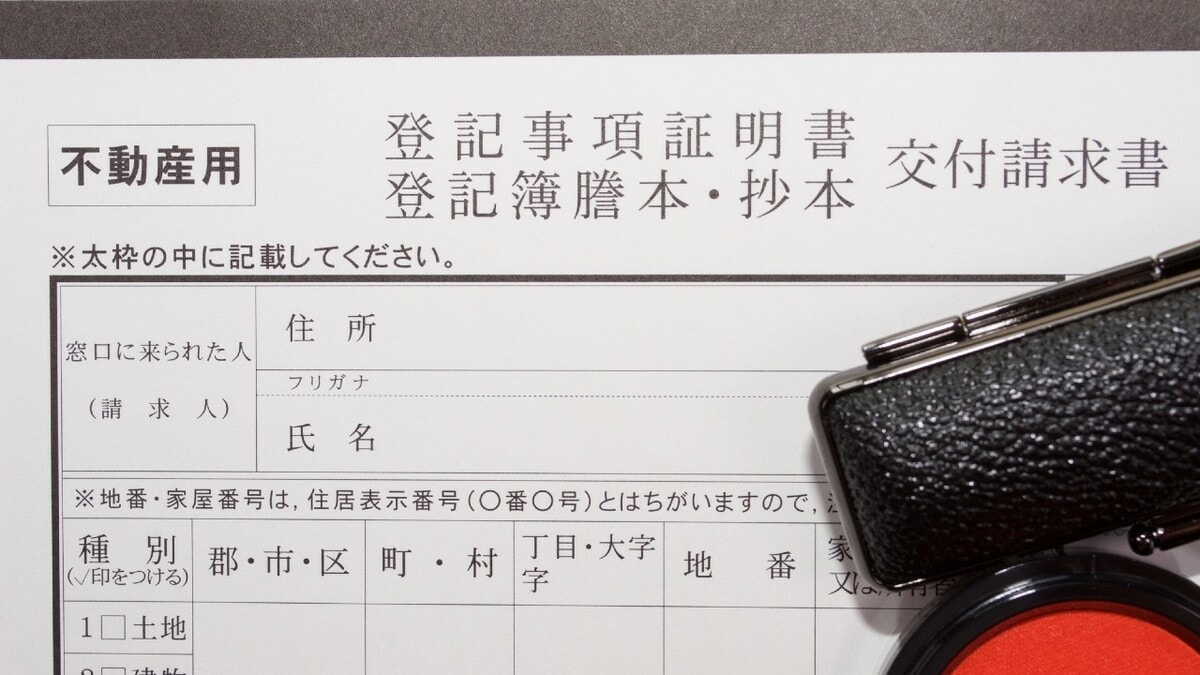 不動産用
登記事項証明書
登記簿謄本・抄本
交付請求書
※太枠の中に記載してください。
窓口に来られた人
(請求人)
住所
フリガナ
氏名
※地番・家屋番号は,住居表示番号(〇番〇号)とはちがいますので,
種別
(√印をつける)
郡・市・区
町・村
丁目・大字
字
地番
家
又は
1□土地